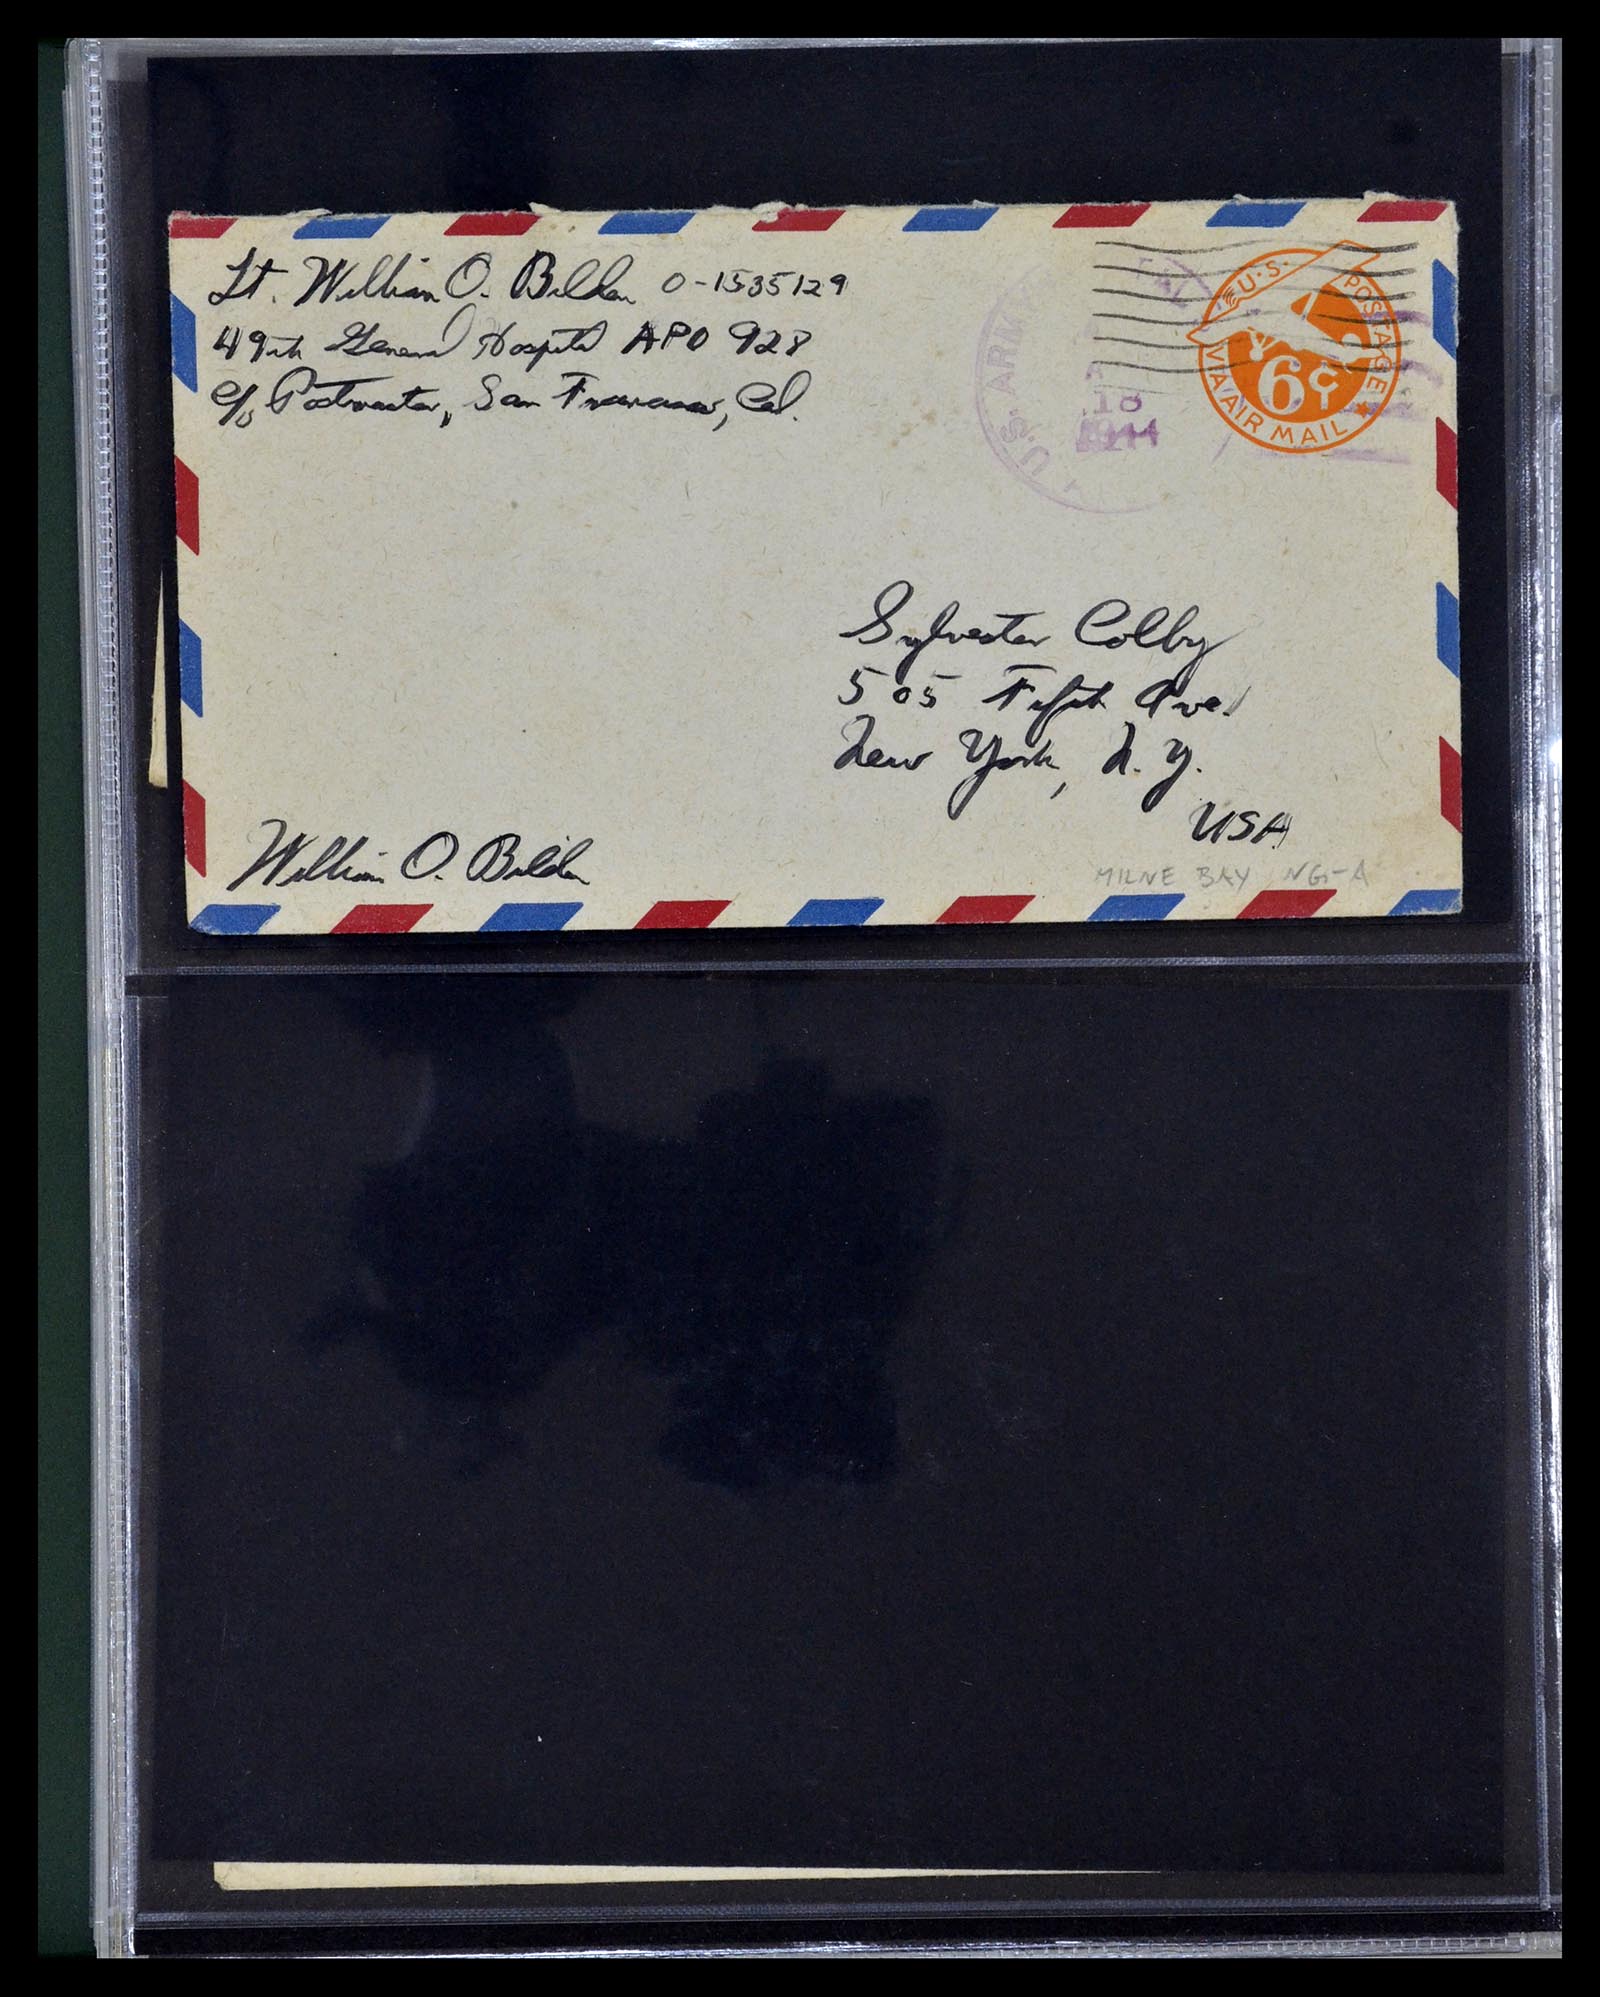 Lt. William O. Bilden O-1535129
49th General Hospital APO 928
c/o Postmaster, San Francisco, Cal.
U.S. ARMY
18
1944
U.S. POSTAGE
6¢
VIA AIR MAIL
Sylvester Colby
505 Fifth Ave.
New York, N.Y.
USA
William O. Bilden
MILNE BAY NG-A